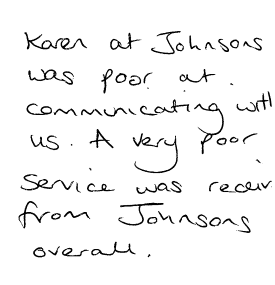 Karen at Johnsons
was poor at.
communicating with
us. A very poor
Service was receiv
from Johnsons
overall.